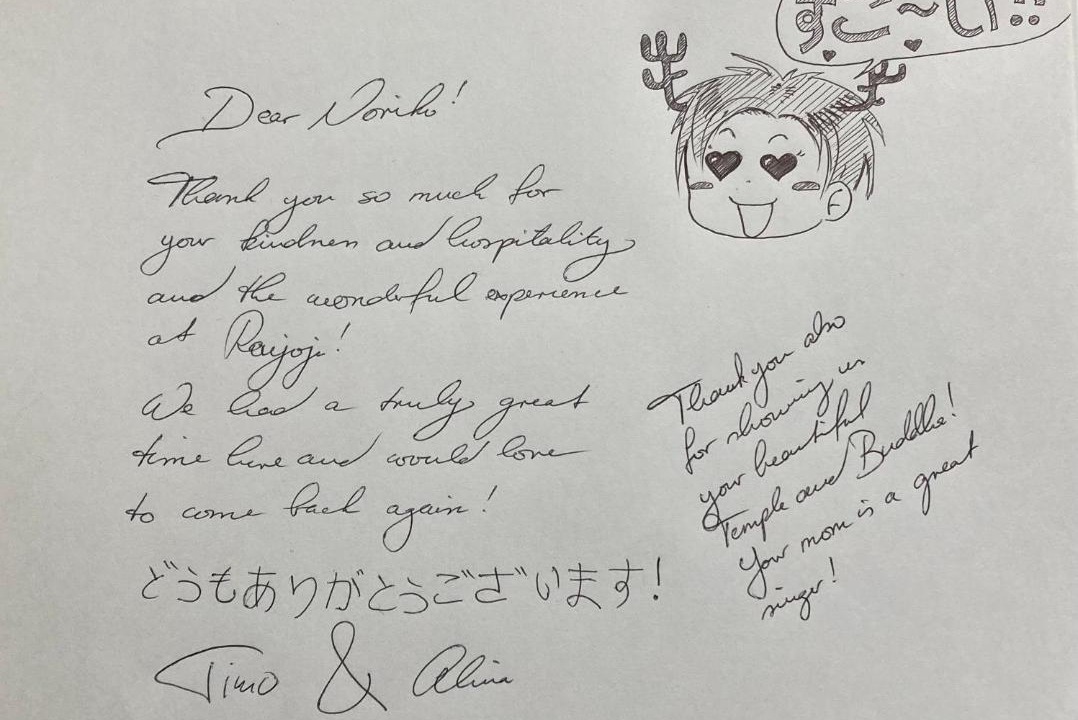 すご〜い!!
Dear Noriko!
Thank you so much for
your kindness and hospitality
and the wonderful experience
at Raijoji!
We had a truly great
time here and would love
to come back again!
どうもありがとうございます!
Timo & Alina
Thank you also
for showing us
your beautiful
Temple and Buddha!
Your mom is a great
singer!